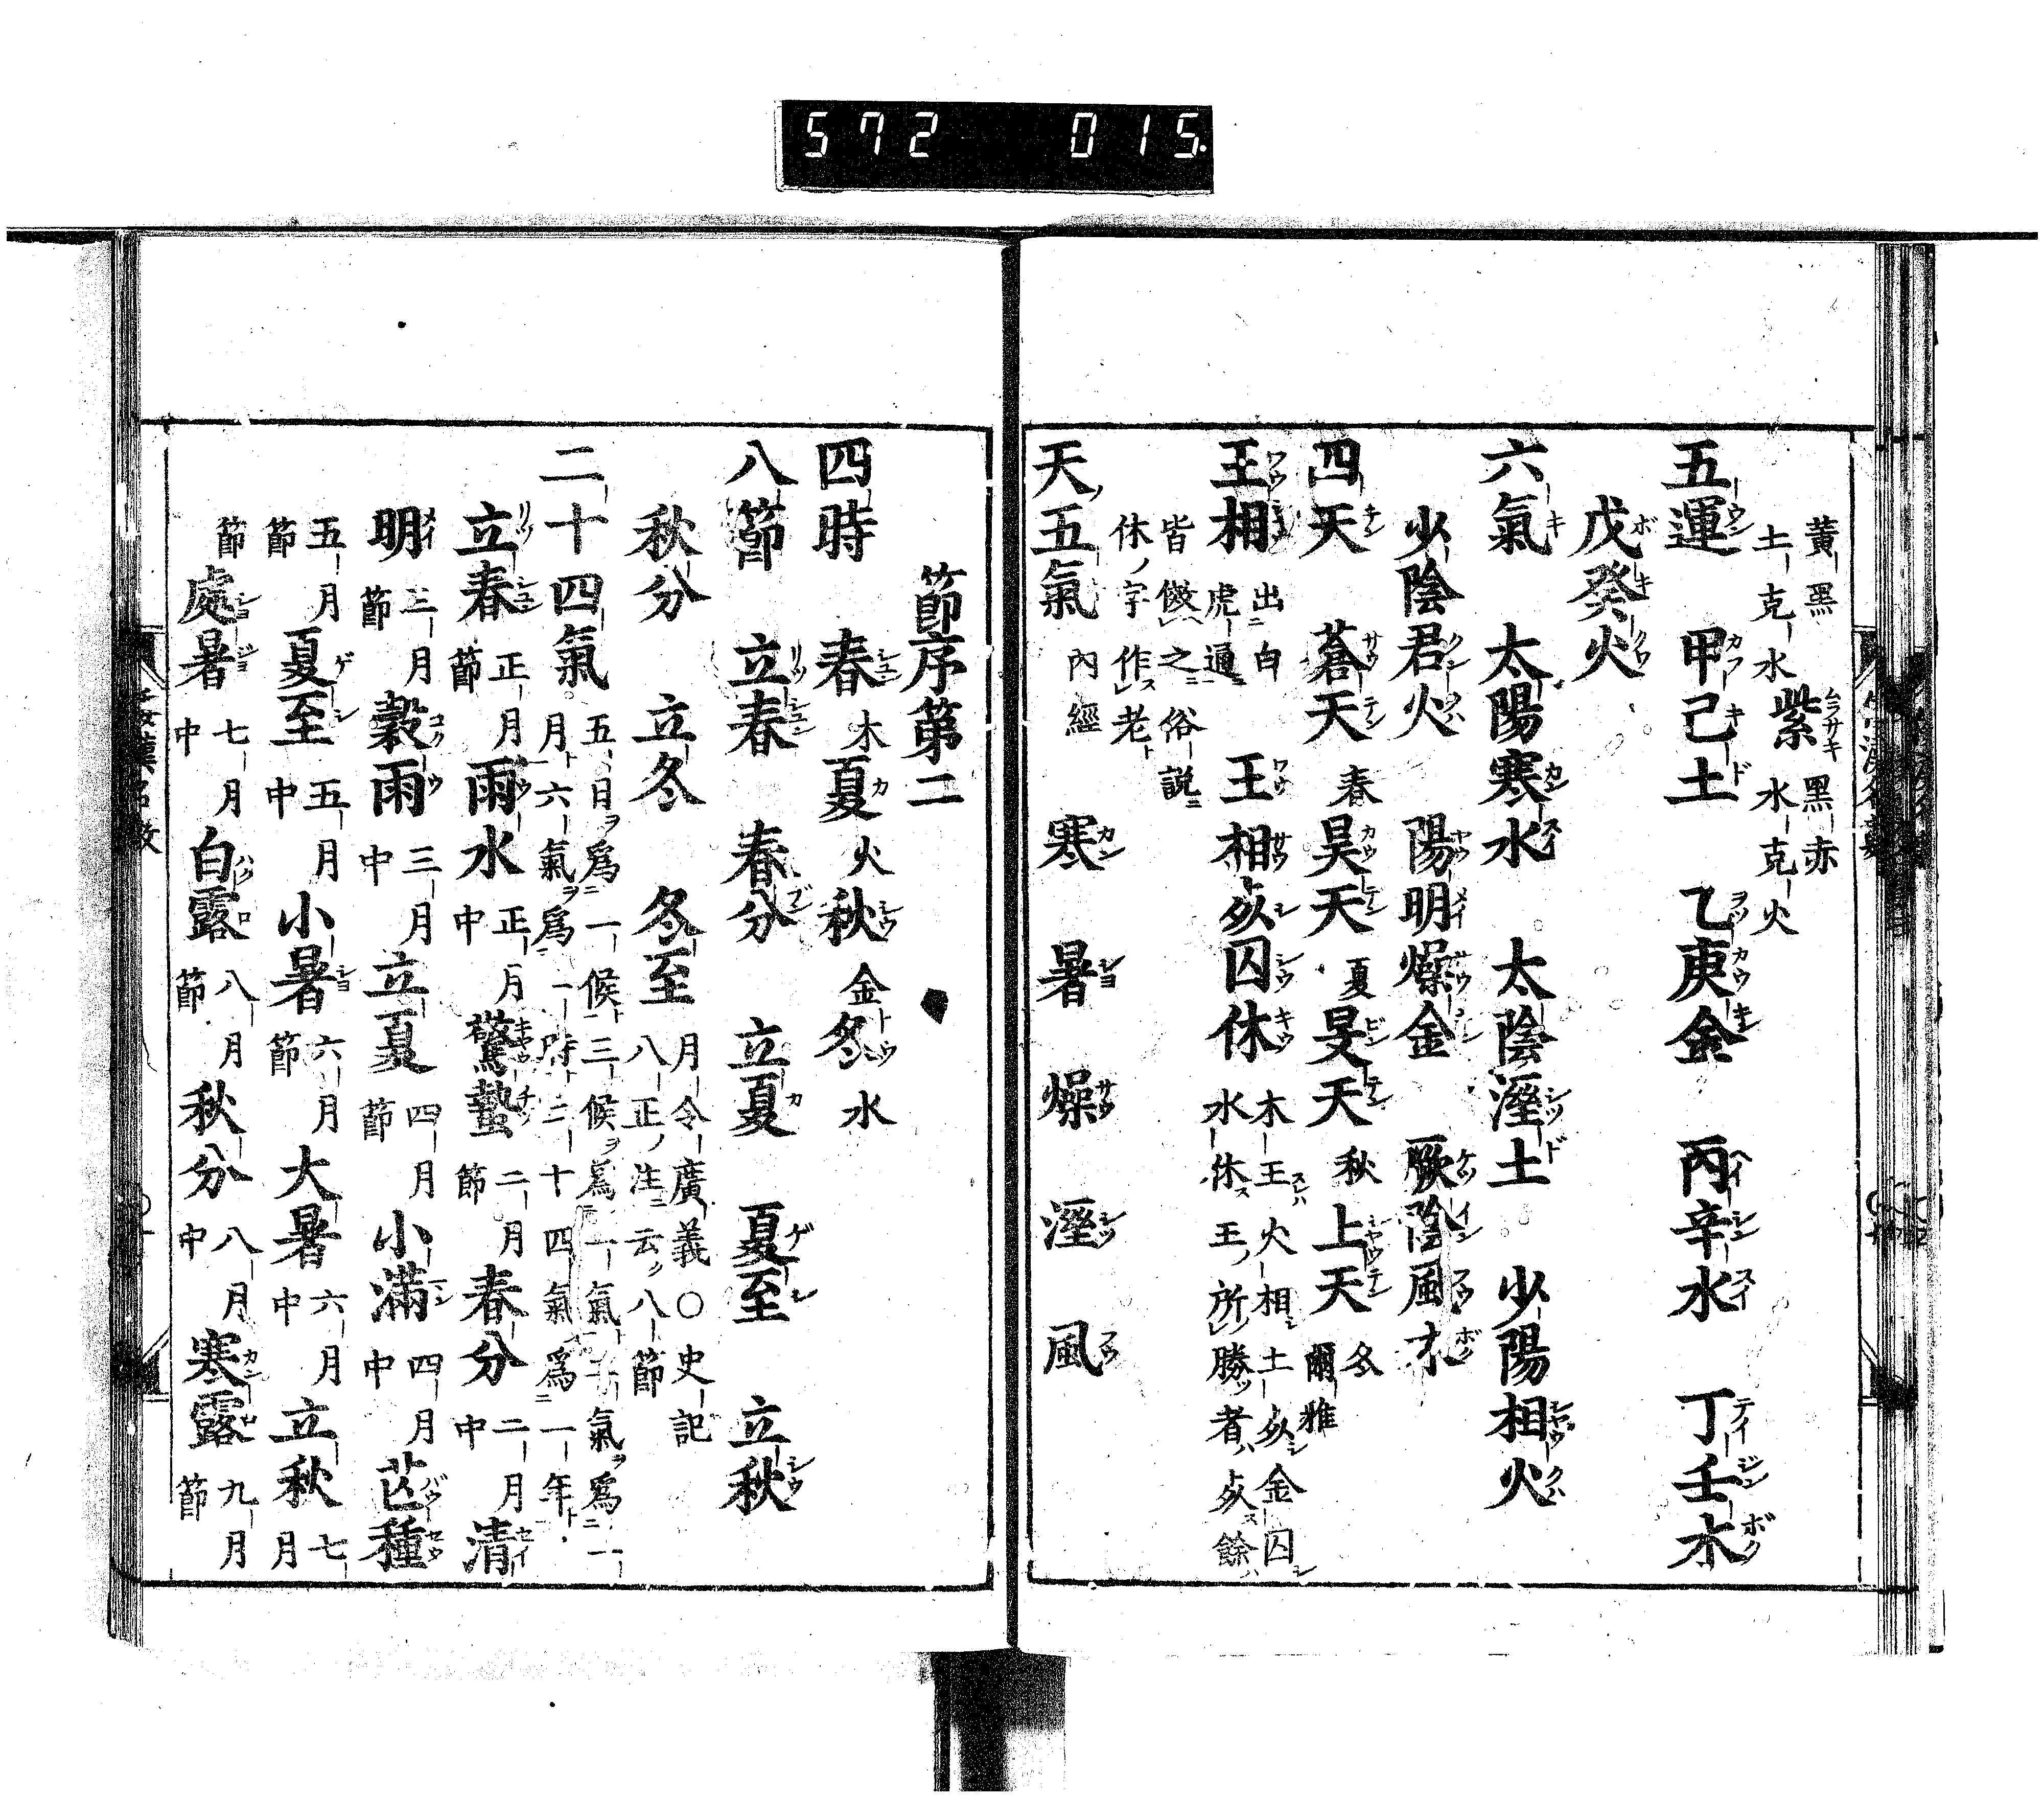 572 015.
黃黑土克水 紫ムラサキ 黑赤水克火
五運 甲己土 乙庚金 丙辛水 丁壬木
戊癸火
六氣 太陽寒水 太陰溼土 少陽相火
少陰君火 陽明燥金 厥陰風木
四天 蒼天春 昊天夏 旻天秋 上天冬 爾雅
王相 出白虎通 王相死囚休 木王火相土死金囚水休王所勝者死餘
皆傚之俗説休字作老
天五氣 內經 寒 暑 燥 溼 風
節序第二
四時 春木 夏火 秋金 冬水
八節 立春 春分 立夏 夏至 立秋
秋分 立冬 冬至 月令廣義○史記八正注云八節
二十四氣 五日爲一候三候爲一氣 氣爲一月六氣爲一時二十四氣爲一年
立春正月節 雨水正月中 驚蟄二月節 春分二月中 清
明三月節 穀雨三月中 立夏四月節 小滿四月中 芒種
五月節 夏至五月中 小暑六月節 大暑六月中 立秋七月
節 處暑七月中 白露八月節 秋分八月中 寒露九月節